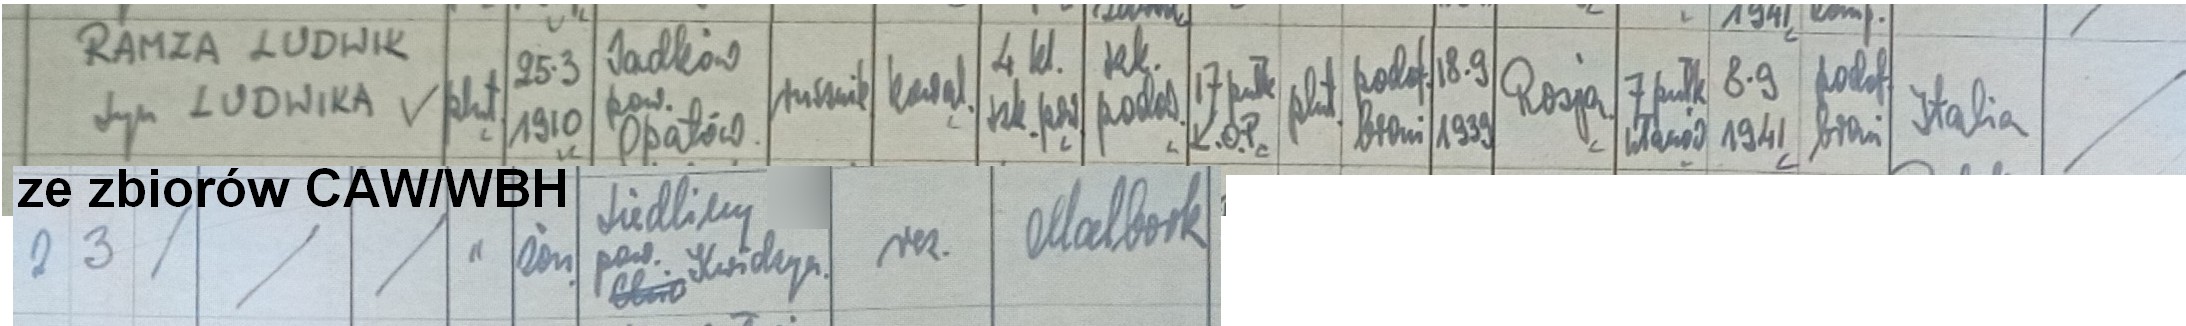 1941 komp.
RAMZA LUDWIK
syn LUDWIKA ✓
plut.
25.3
1910
Jadków
pow.
Opatów.
rusznik
kowal.
4 kl.
szk. pow
szk.
podof.
17 pułk
K.O.P.
plut.
podof.
broni
18.9
1939
Rosja.
7 pułk
ułanów
8.9
1941
podof.
broni
Italia
/
ze zbiorów CAW/WBH
2 3 / / / " żon.
Siedliny
pow.
Kwidzyn.
rez.
Malbork